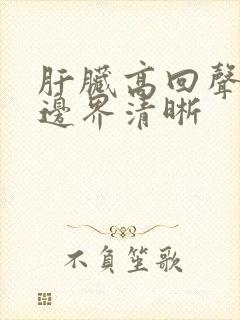 肝臟高回聲
邊界清晰
不負笙歌